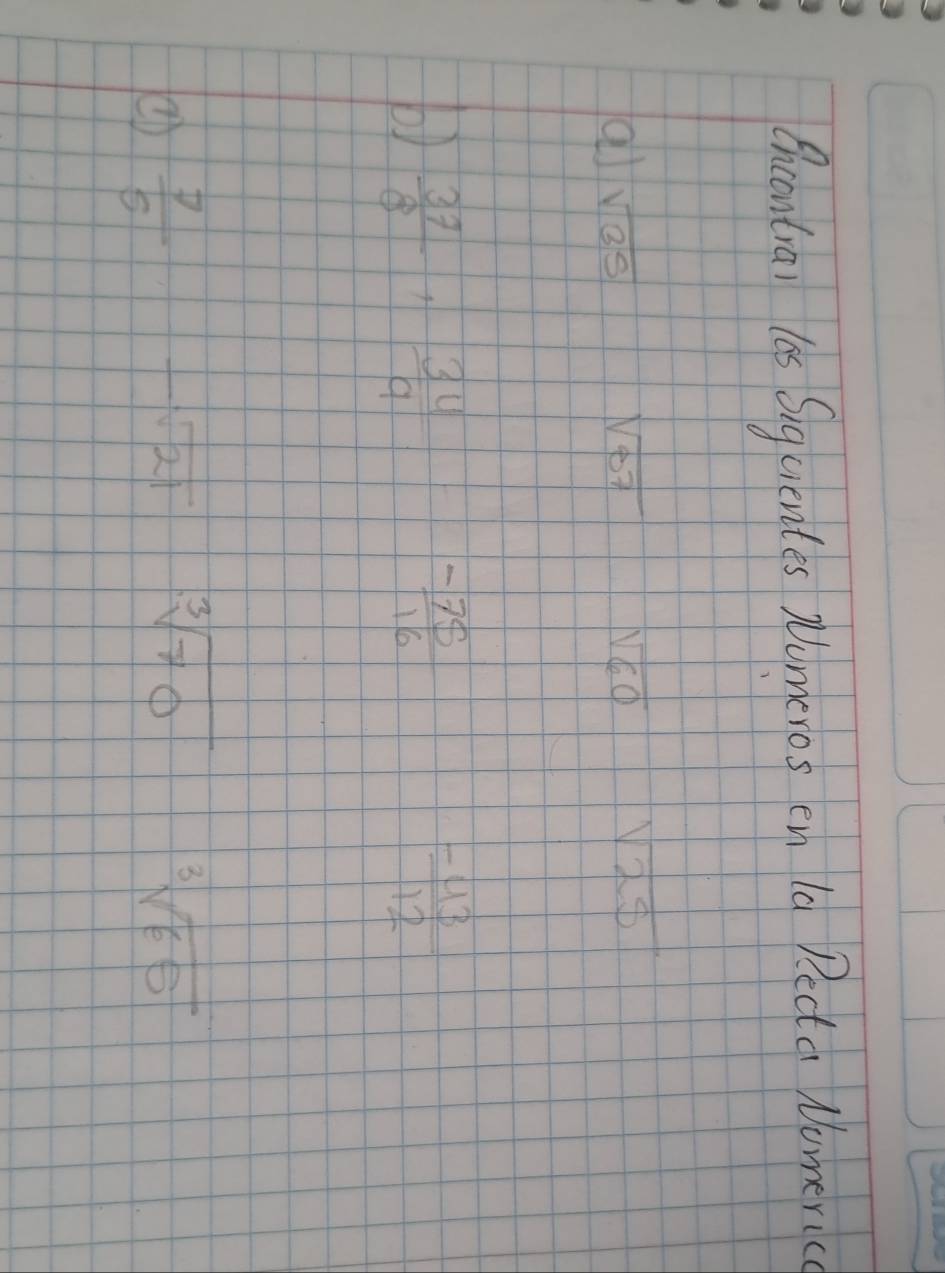 Encontrar los Siguientes Números en la Recta Numerica
a) √35 √67 √60 √25
b) 37/8 , 34/9 -75/16 -43/12
c) 7/5 -√21 ∛70